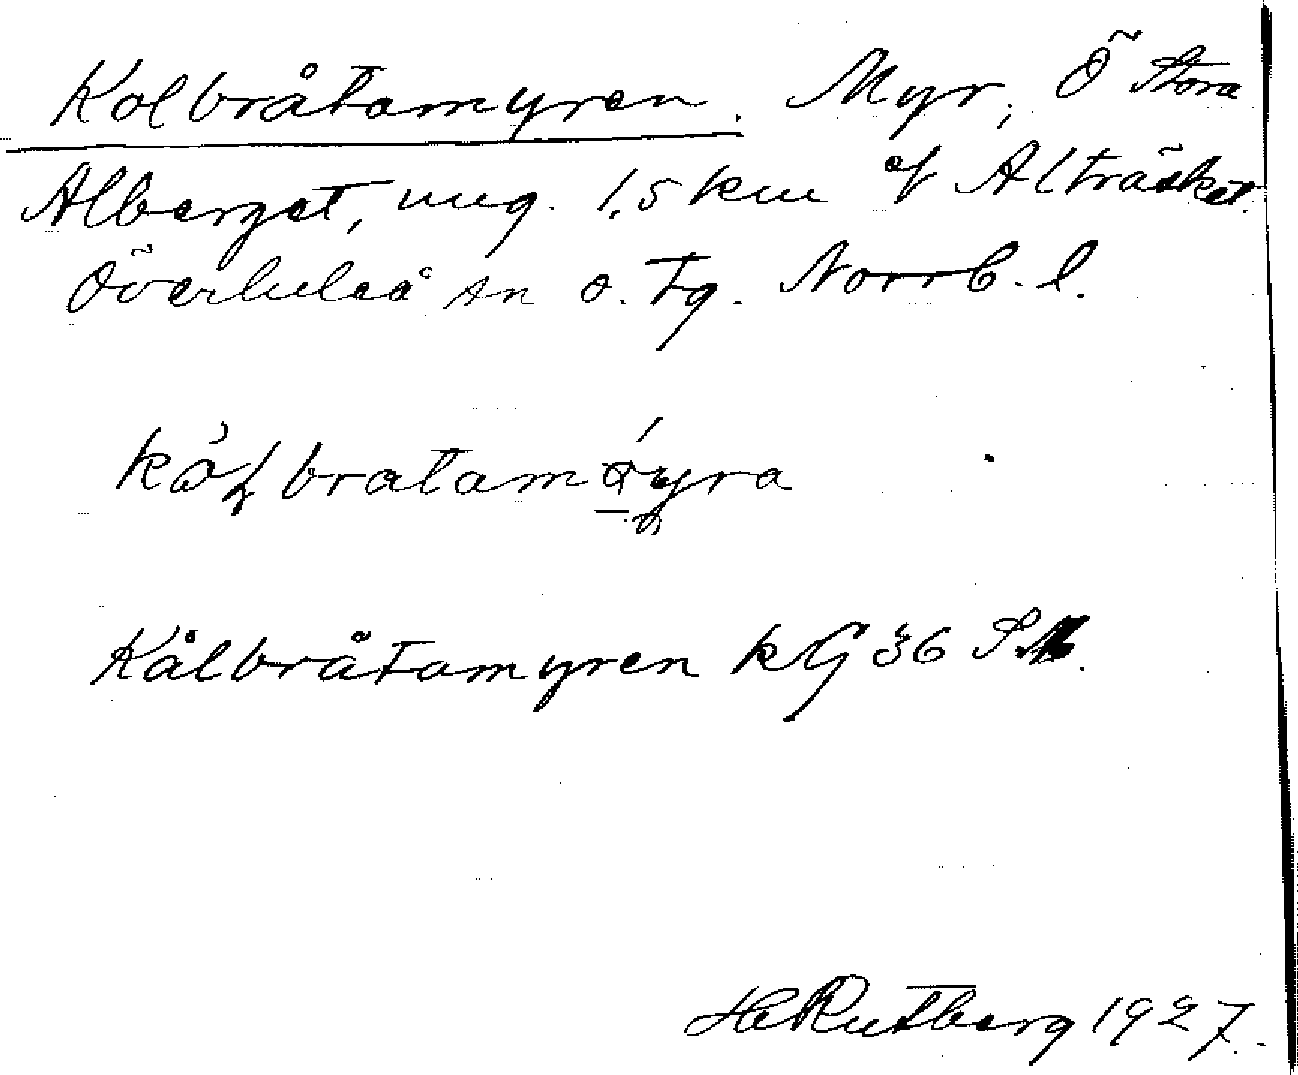 Kolbråtamyren. Myr, Ö Stora
Alberget, ung. 1,5 km af Alträsket.
Överluleå sn o. tg. Norrb. l.
Kålbråtamyren kG 36
H Rutberg 1927.